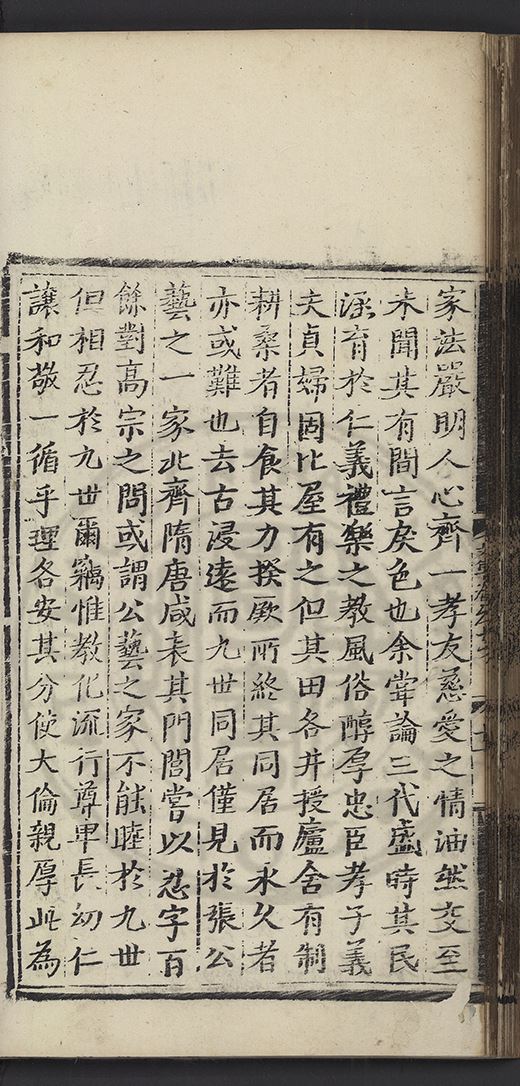 家法嚴明人心齊一孝友慈愛之情油然交至
未聞其有間言戾色也余嘗論三代盛時其民
涵育於仁義禮樂之教風俗醇厚忠臣孝子義
夫貞婦固比屋有之但其田各井授廬舍有制
耕桑者自食其力揆厥所終其同居而永久者
亦或難也去古浸遠而九世同居僅見於張公
藝之一家北齊隋唐咸表其門閭嘗以忍字百
餘對高宗之問或謂公藝之家不能睦於九世
但相忍於九世爾竊惟教化流行尊卑長幼仁
讓和敬一循乎理各安其分使大倫親厚此為